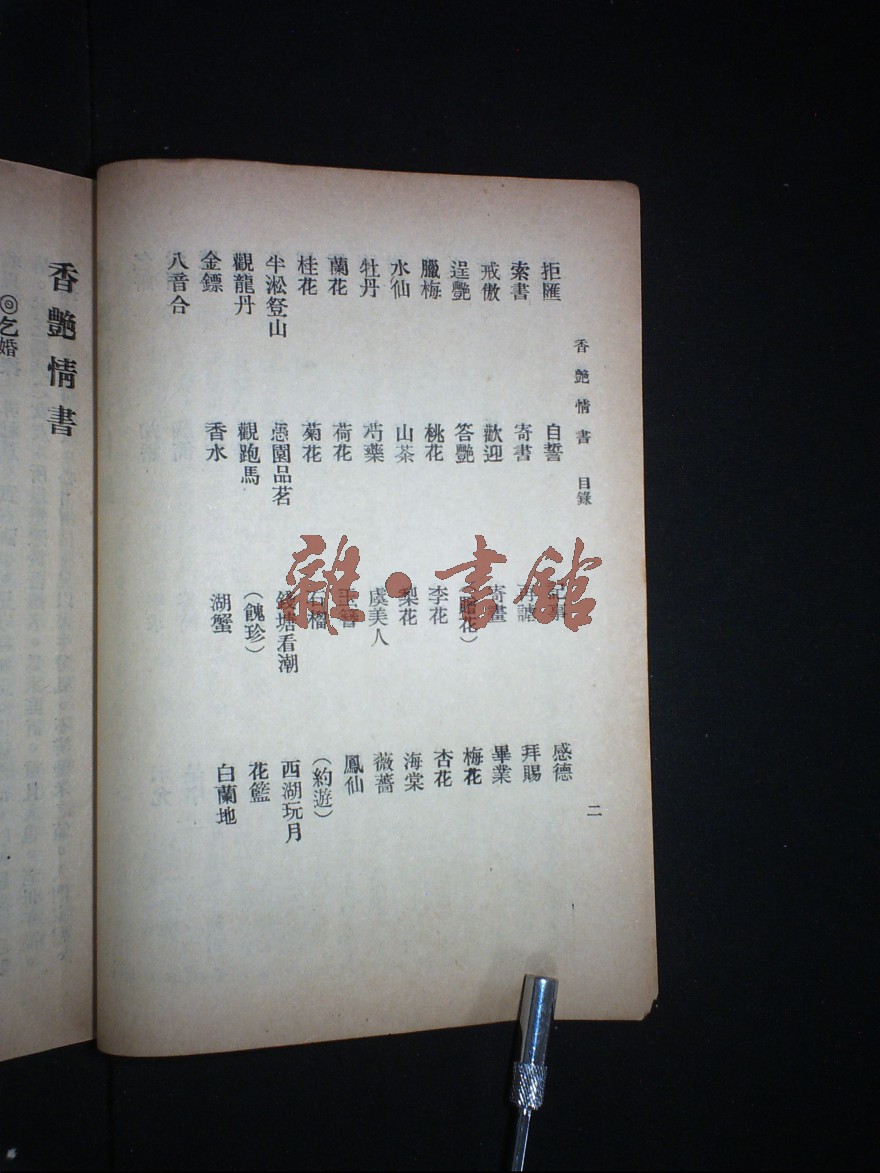 香艷情書 目錄 二
拒匯 自誓 感德
索書 寄書 拜賜
戒傲 歡迎 寄畫 畢業
逞艷 答艷 (贈花) 梅花
臘梅 桃花 李花 杏花
水仙 山茶 梨花 海棠
牡丹 芍藥 虞美人 薇薔
蘭花 荷花 玉簪 鳳仙
桂花 菊花 石榴 (約遊)
半淞登山 愚園品茗 錢塘看潮 西湖玩月
觀龍丹 觀跑馬 (餽珍) 花籃
金鏢 香水 湖蟹 白蘭地
八音合
香艷情書
◎乞婚
雜·書館